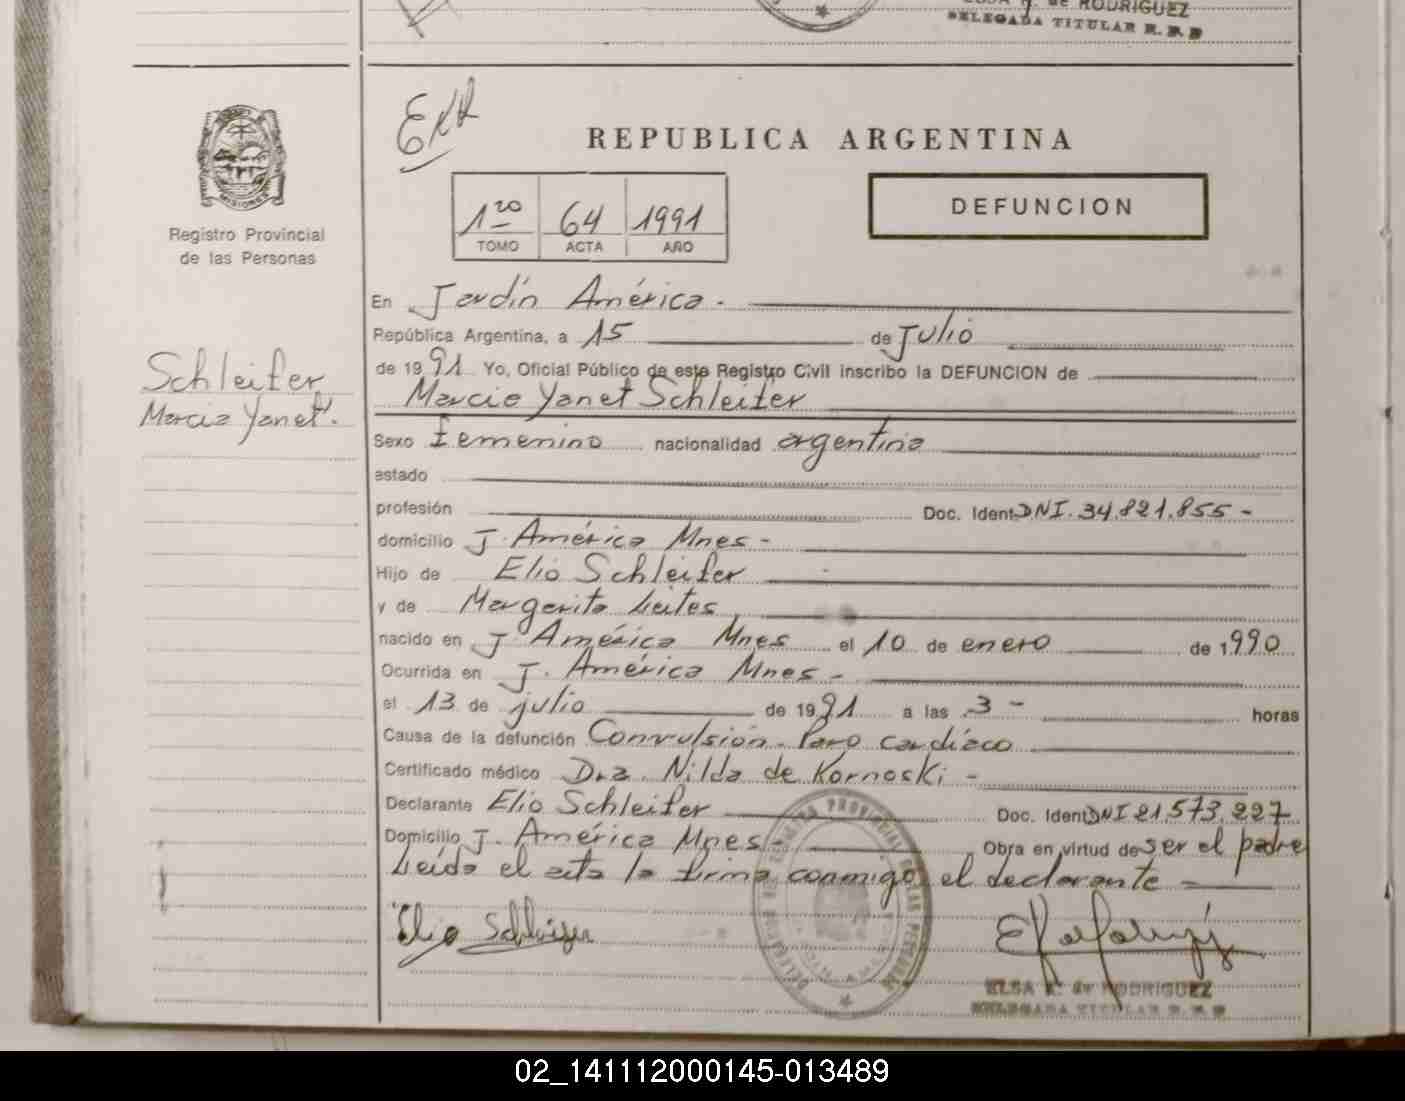 RODRIGUEZ
DELEGADA TITULAR R. P. P
REPUBLICA ARGENTINA
1ro 64 1991
TOMO ACTA AÑO
DEFUNCION
MISIONES
Registro Provincial
de las Personas
Schleifer
Marcia Yanet.
En Jardín América.
República Argentina, a 15 de Julio
de 1991 Yo, Oficial Público de este Registro Civil inscribo la DEFUNCION de
Marcia Yanet Schleifer
Sexo femenino nacionalidad argentina
estado
profesión Doc. Ident. DNI. 34.821.855-
domicilio J. América Mnes-
Hijo de Elio Schleifer
y de Margarita Leites
nacido en J. América Mnes el 10 de enero de 1990
Ocurrida en J. América Mnes-
el 13 de julio de 1991 a las 3- horas
Causa de la defunción Convulsión. Paro cardíaco
Certificado médico Dra. Nilda de Kornoski-
Declarante Elio Schleifer Doc. Ident. DNI 21.573.227
Domicilio J. América Mnes- Obra en virtud de ser el padre
Leída el acta la firma conmigo el declarante-
Elio Schleifer
ELSA R. de RODRIGUEZ
DELEGADA TITULAR R. P. P
02_141112000145-013489